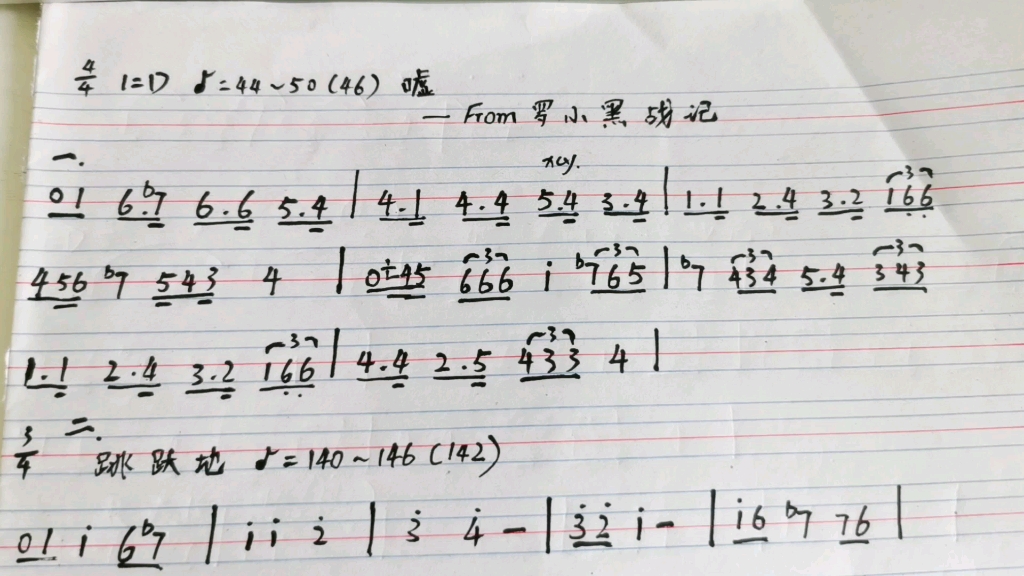 4/4 1=D ♪=44~50(46) 嘘
— From 罗小黑战记
一.
01 6.♭7 6.6 5.4 | 4.1 4.4 5.4 3.4 | 1.1 2.4 3.2 166
456 ♭7 543 4 | 045 666 i ♭765 | ♭7 434 5.4 343
1.1 2.4 3.2 166 | 4.4 2.5 433 4 |
二.
3/4 跳跃地 ♪=140~146(142)
01 i 6♭7 | i i 2̇ | 3̇ 4̇ - | 3̇2̇ i - | i6 ♭7 76 |